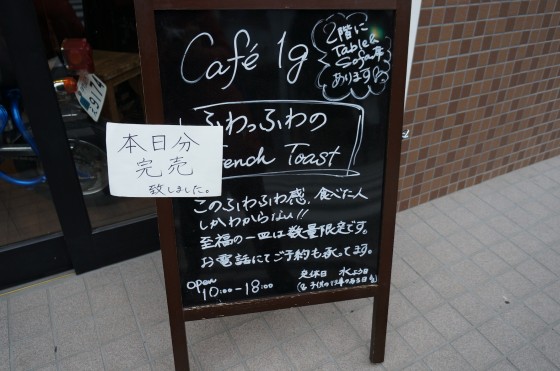 Café 1g
2階に
Table&
Sofa席
あります
ふわっふわの
French Toast
本日分
完売
致しました。
このふわふわ感、食べた人
しかわからない!!
至福の一皿は数量限定です。
お電話にてご予約も承ってます。
open
10:00-18:00
定休日 水よう日